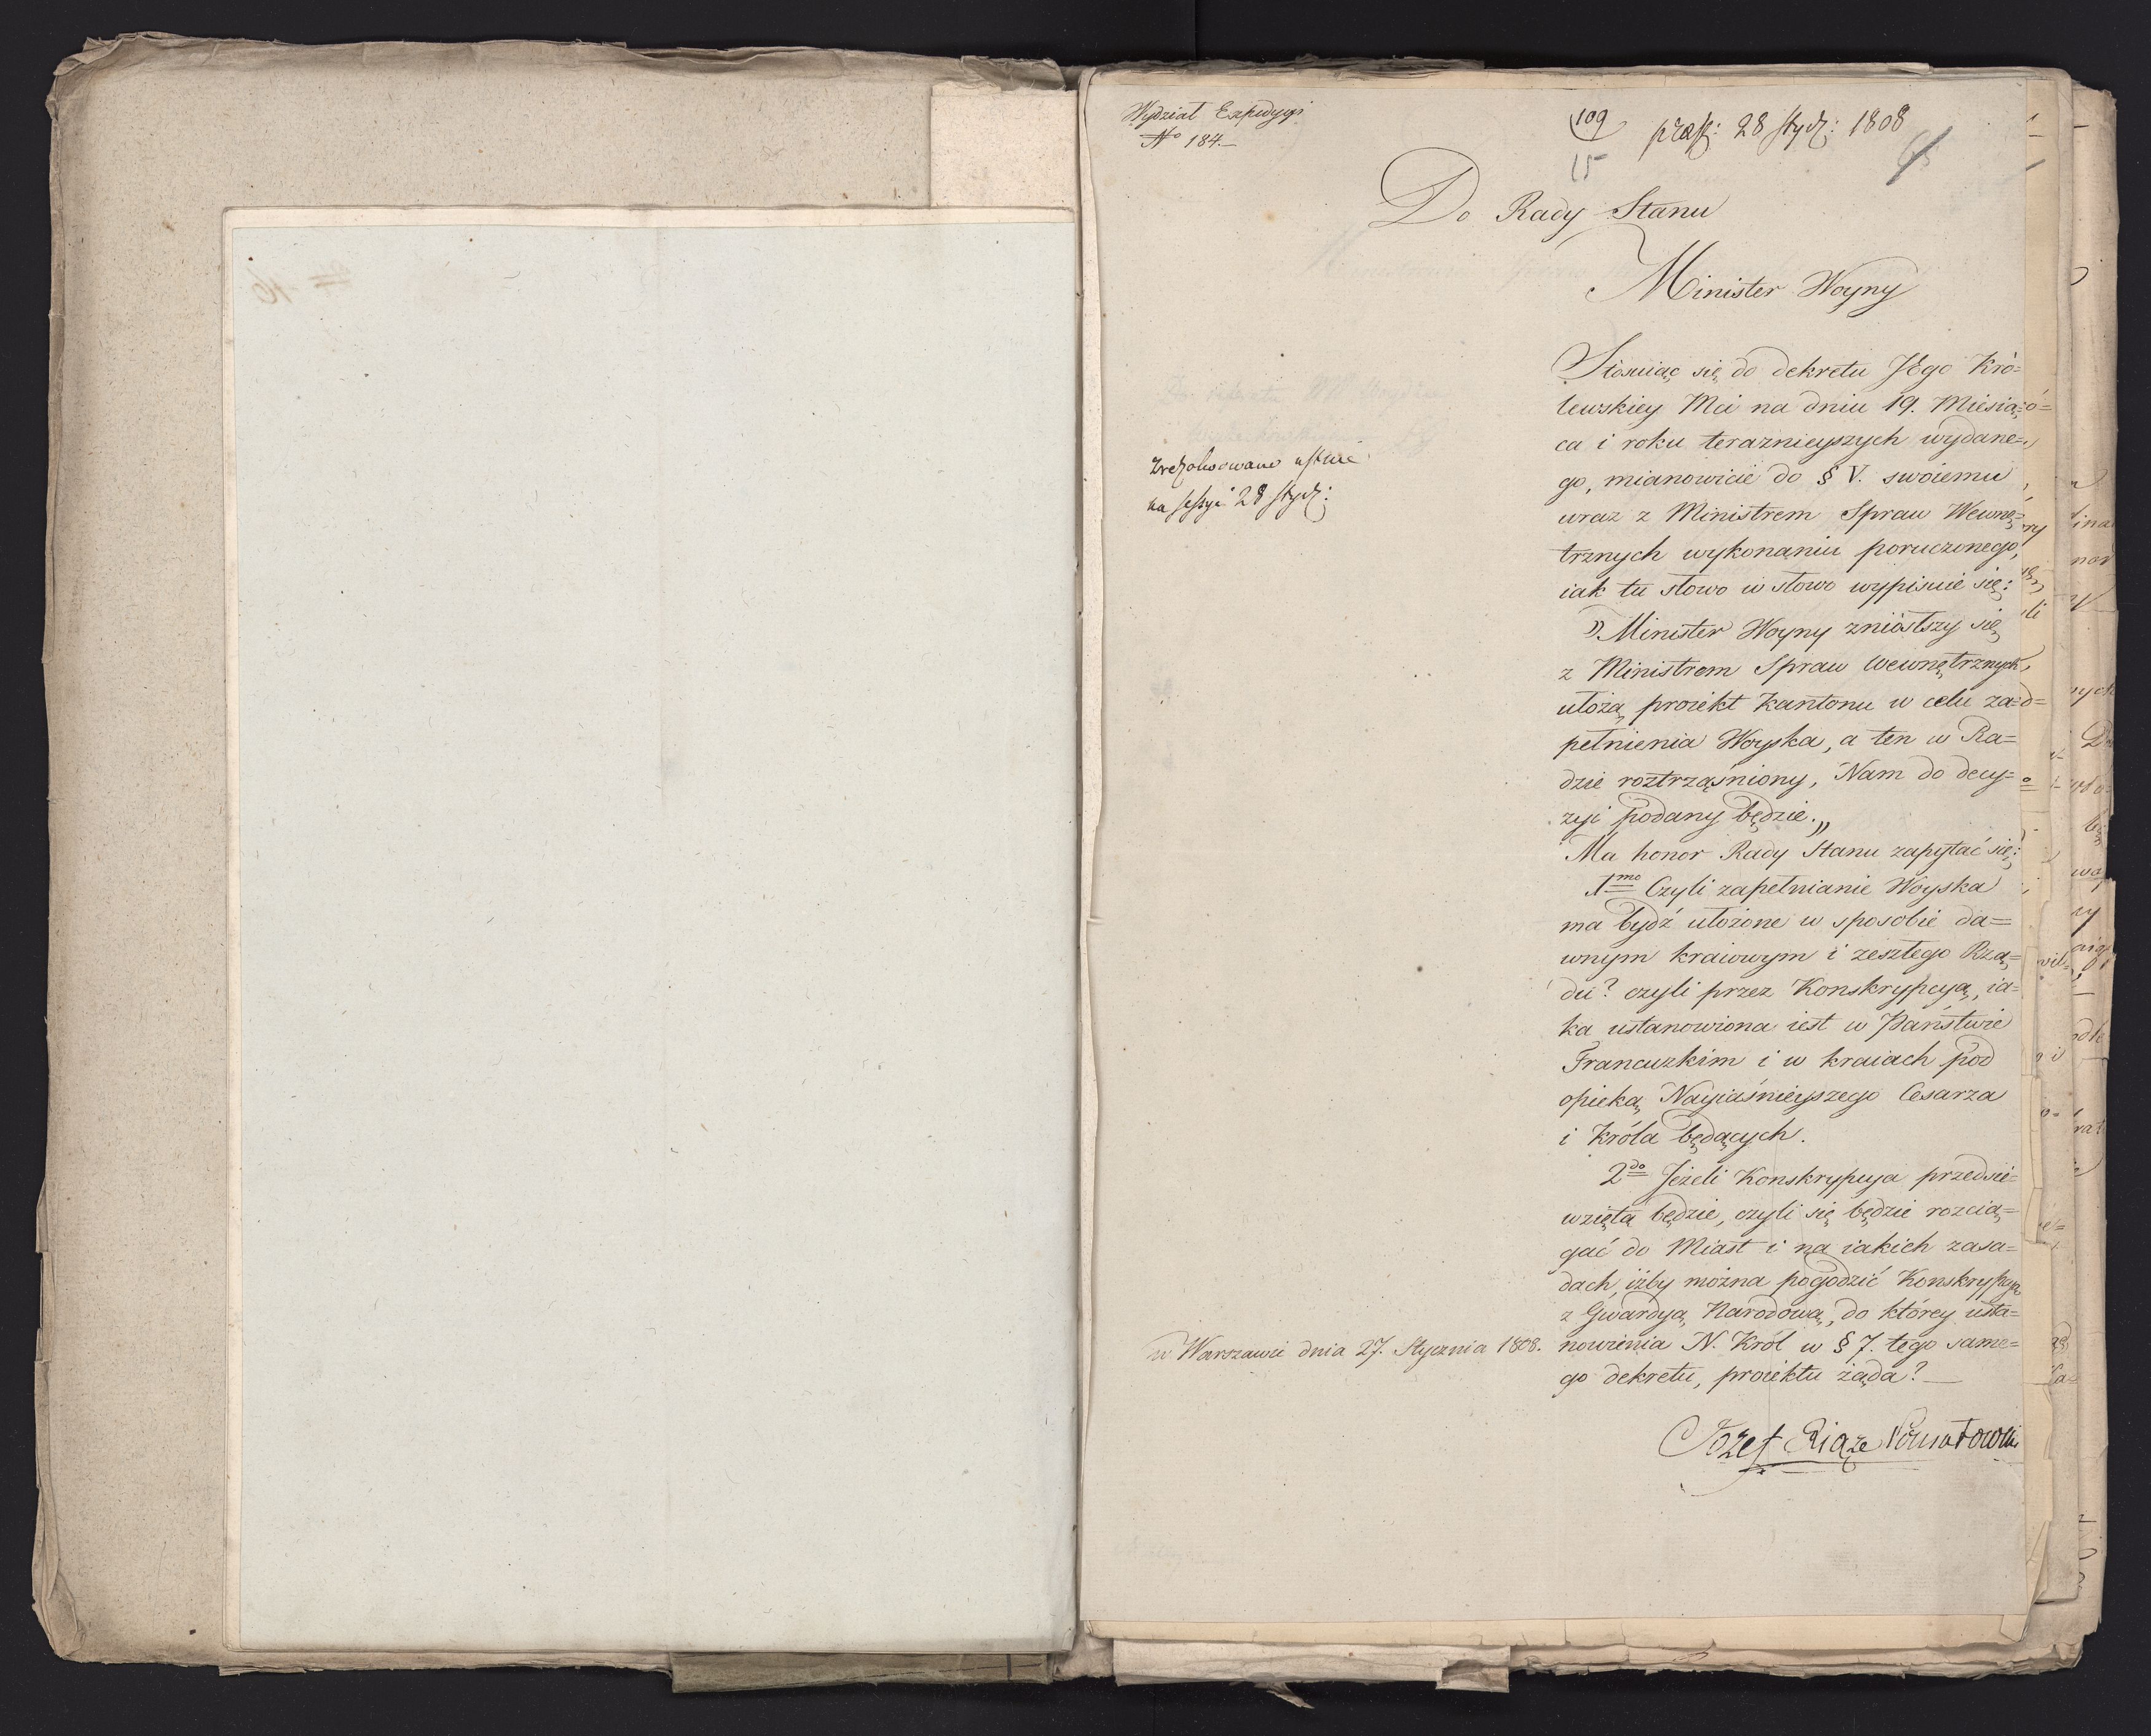 Wydział Expedycyi
No 184.
109
15
præs: 28 stycz: 1808
Do Rady Stanu
Minister Woyny
zrezolwowano ustnie
na sessyi 28 stycz:
Stosuiąc się do dekretu JEgo Kró=
lewskiey Mci na dniu 19. Miesią=
ca i roku teraznieyszych wydane=
go, mianowicie do § V. swoiemu
wraz z Ministrem Spraw Wewnę=
trznych wykonaniu poruczonego,
iak tu słowo w słowo wypisuie się:
„Minister Woyny zniósłszy się
z Ministrem Spraw Wewnętrznych
ułożą proiekt Kantonu w celu za=
pełnienia Woyska, a ten w Ra=
dzie roztrząśniony, Nam do decy=
zyi podany będzie.„
Ma honor Rady Stanu zapytać się:
1mo Czyli zapełnianie Woyska
ma bydź ułożone w sposobie da=
wnym kraiowym i zeszłego Rzą=
du? czyli przez Konskrypcyą, ia=
ka ustanowiona iest w Państwie
Francuzkim i w kraiach pod
opieką Nayiaśnieyszego Cesarza
i Króla będących.
2do Jeżeli Konskrypcya przedsię=
wzięta będzie, czyli się będzie rozcią=
gać do Miast i na iakich zasa=
dach, iżby można pogodzić Konskrypcyą
z Gwardyą Narodową, do którey usta=
nowienia N. Król w § 7. tego same=
go dekretu, proiektu żąda?
w Warszawie dnia 27. Stycznia 1808.
Józef Xiąże Poniatowski